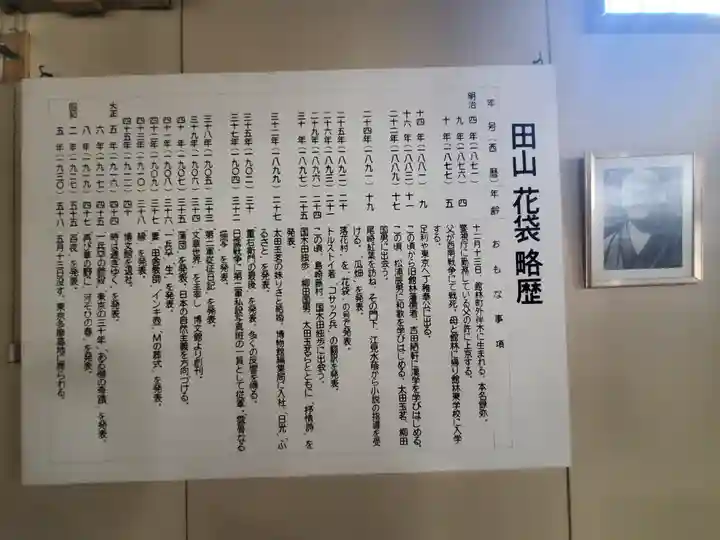 田山 花袋 略歴
年 号（西 暦）年齢 おもな事項
明治 四年（一八七一） 十二月十三日、館林町外伴木に生まれる。本名録弥。
九年（一八七六） 四 警視庁に勤務している父の許に上京する。
十年（一八七七） 五 父が西南戦争にて戦死。母と館林に帰り館林東学校に入学
する。
十四年（一八八一） 九 足利や東京へ丁稚奉公に出る。
十六年（一八八三） 十一 この頃から旧館林藩儒者、吉田陋軒に漢学を学びはじめる。
二十二年（一八八九） 十七 この頃、松浦辰男に和歌を学びはじめる。太田玉茗、柳田
国男に出会う。
二十四年（一八九一） 十九 尾崎紅葉を訪ね、その門下、江見水蔭から小説の指導を受
ける。「瓜畑」を発表。
二十五年（一八九二） 二十 「落花村」を「花袋」の号で発表。
二十六年（一八九三） 二十一 トルストイ著「コサック兵」の翻訳を発表。
二十九年（一八九六） 二十四 この頃、島崎藤村、国木田独歩に出会う。
三十年（一八九七） 二十五 国木田独歩、柳田国男、太田玉茗らとともに「抒情詩」を
発表。
三十二年（一八九九） 二十七 太田玉茗の妹りさと結婚。博物館編集局に入社。「日光」「ふ
るさと」を発表。
三十五年（一九〇二） 三十 「重右衛門の最後」を発表、多くの反響を得る。
三十七年（一九〇四） 三十二 日露戦争に第二軍私設写真班の一員として従軍。「露骨なる
描写」を発表。
三十八年（一九〇五） 三十三 「第二軍従征日記」を発表。
三十九年（一九〇六） 三十四 「文章世界」を主宰し、博文館より創刊。
四十年（一九〇七） 三十五 「蒲団」を発表、日本の自然主義を方向づける。
四十一年（一九〇八） 三十六 「一兵卒」「生」を発表。
四十二年（一九〇九） 三十七 「妻」「田舎教師」「インキ壺」「Mの葬式」を発表。
四十三年（一九一〇） 三十八 「縁」を発表。
四十五年（一九一二） 四十 博文館を退社。
大正 五年（一九一六） 四十四 「時は過ぎゆく」を発表。
六年（一九一七） 四十五 「一兵卒の銃殺」「東京の三十年」「ある僧の奇蹟」を発表。
八年（一九一九） 四十七 「再び草の野に」「河ぞひの春」を発表。
昭和 二年（一九二七） 五十五 「百夜」を発表。
五年（一九三〇） 五十八 五月十三日没す。東京多磨墓地に葬られる。